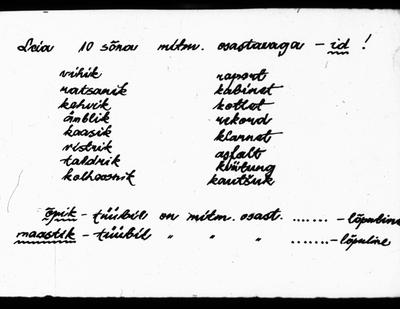 Leia 10 sõna mitm. osastavaga – id !
vihik raport
ratsanik kabinet
kohvik kotlet
ämblik rekord
kaasik klarnet
ristik asfalt
taldrik kviitung
kolhoosnik kautšuk
õpik – tüübil on mitm. osast. ....... – lõpuline
maastik – tüübil " " " ....... – lõpuline